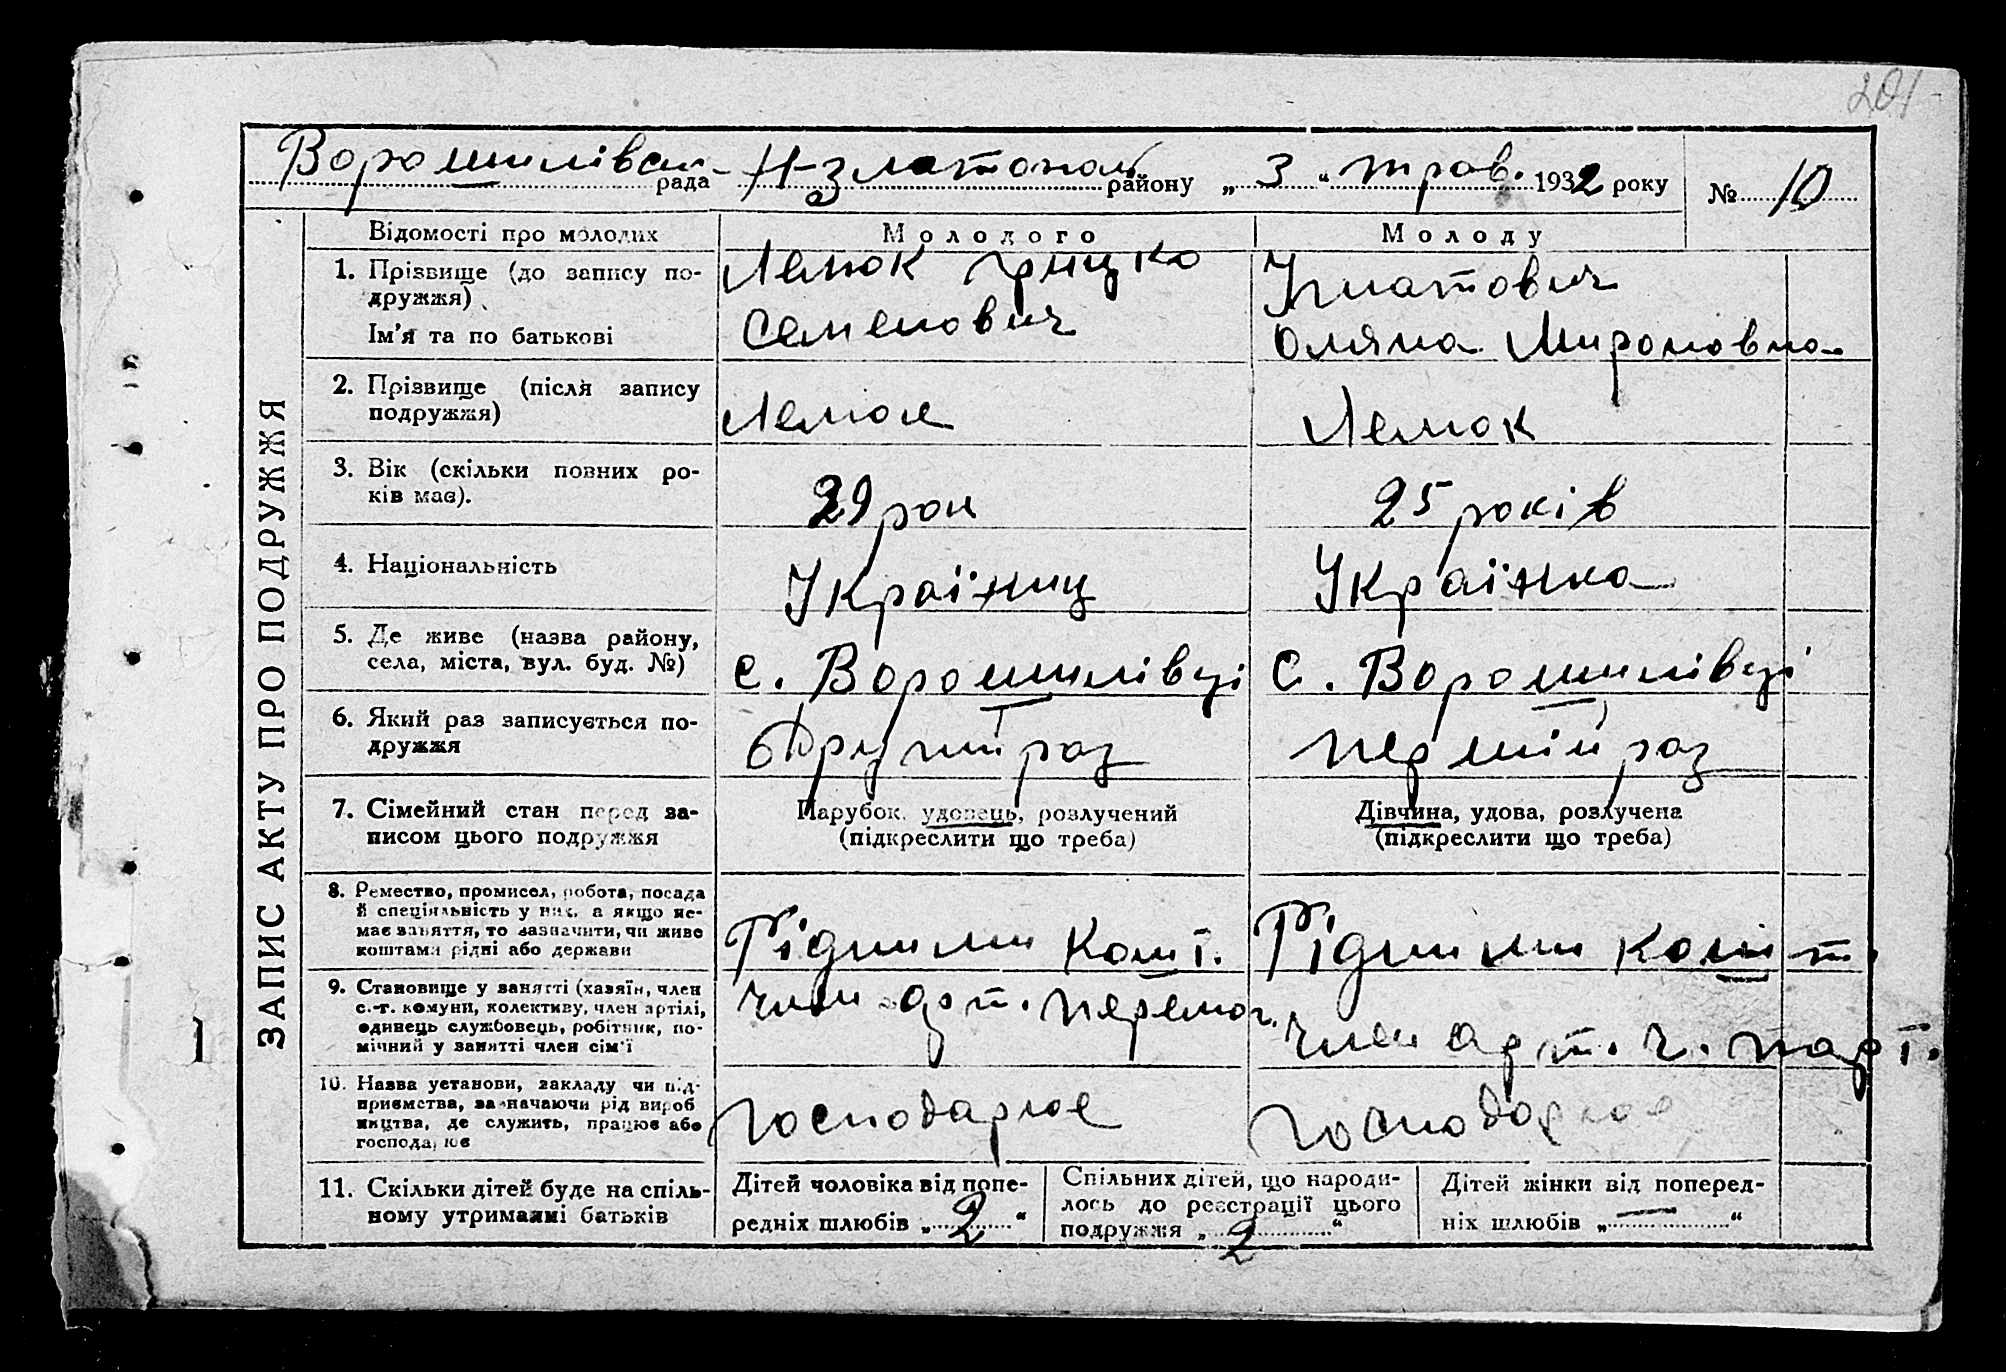 201
Ворошилівськ рада Н-златопол району „ 3 “ трав. 1932 року № 10
ЗАПИС АКТУ ПРО ПОДРУЖЖЯ
Відомості про молодих Молодого Молоду
1. Прізвище (до запису по-
дружжя)
Ім’я та по батькові
Лемок Грицко
Семенович
Ігнатович
Оляна Мироновна
2. Прізвище (після запису
подружжя)
Лемок
Лемок
3. Вік (скільки повних ро-
ків має).
29 рок
25 років
4. Національність
Українц
Українка
5. Де живе (назва району,
села, міста, вул. буд. №)
с. Ворошилівці
с. Ворошилівці
6. Який раз записується по-
дружжя
Другий раз
перший раз
7. Сімейний стан перед за-
писом цього подружжя
Парубок, удовець, розлучений
(підкреслити що треба)
Дівчина, удова, розлучена
(підкреслити що треба)
8. Ремество, промисел, робота, посада
й спеціяльність у них, а якщо не-
має заняття, то зазначити, чи живе
коштами рідні або держави
Рідними кошт.
Рідними кошт.
9. Становище у занятті (хазяїн, член
с.-г. комуни, колективу, член артілі,
одинець службовець, робітник, по-
мічний у занятті член сім’ї
член арт. перемог.
член арт. ч. парт.
10. Назва установи, закладу чи під-
приємства, зазначаючи рід вироб
ництва, де служить, працює або
господарює
господарює
господарює
11. Скільки дітей буде на спіль-
ному утриманні батьків
Дітей чоловіка від попе-
редніх шлюбів „ 2 “
Спільних дітей, що народи-
лось до реєстрації цього
подружжя „ 2 “
Дітей жінки від поперед-
ніх шлюбів „ — “
1